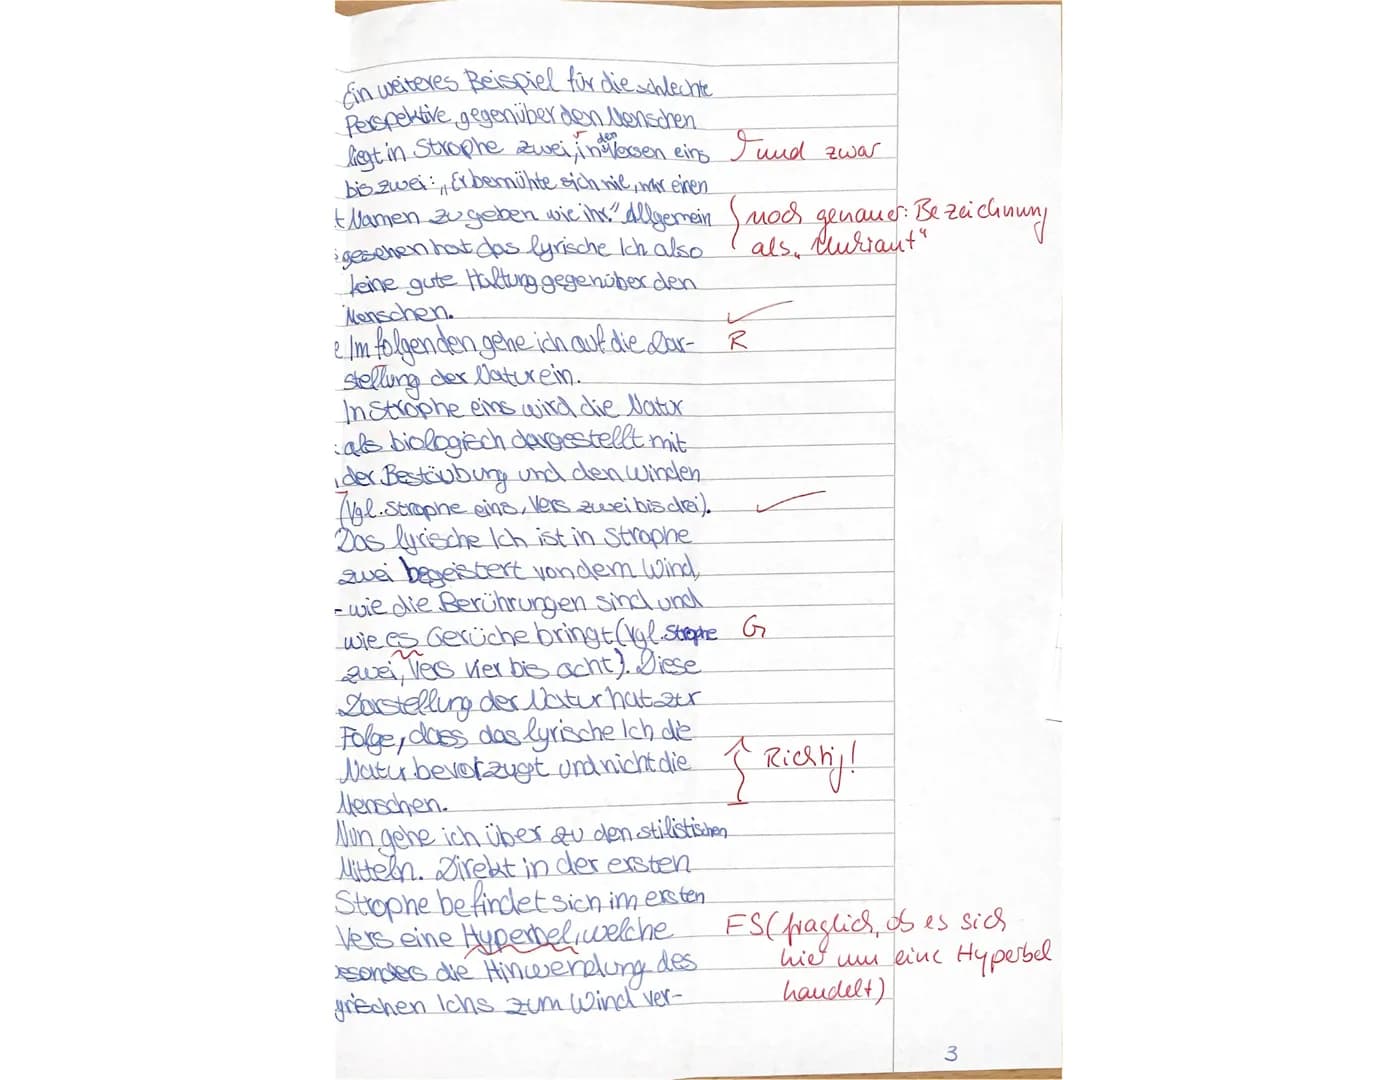 Ein weiteres Beispiel für die schlechte
Perspektive, gegenüber den Menschen
liegt in Strophe zwei, in den Versen eins
und zwar
bis zwei: „Er bemühte sich nie, mir einen
t Namen zu geben wie ihr." Allgemein
{ noch genauer: Bezeichnung
gesehen hat das lyrische Ich also
als
keine gute Haltung gegenüber den
Menschen.
e Im folgenden gehe ich auf die Dar-
R
stellung der Natur ein.
In Strophe eins wird die Natur
als biologisch dargestellt mit
der Bestäubung und den Winden
(Vgl. Strophe eins, Vers zwei bis drei).
Das lyrische Ich ist in Strophe
zwei begeistert von dem Wind,
- wie die Berührungen sind und
wie es Gerüche bringt (Vgl. Strophe
G
zwei, Vers vier bis acht). Diese
Darstellung der Natur hat zur
Folge, dass das lyrische Ich die
Natur bevorzugt und nicht die
Richtig!
Menschen.
Nun gehe ich über zu den stilistischen
Mitteln. Direkt in der ersten
Strophe befindet sich im ersten
Vers eine Hyperbel, welche
FS (fraglich, ob es sich
hier um eine Hyperbel
esonders die Hinwendung des
handelt)
yrischen Ichs zum Wind ver-
3